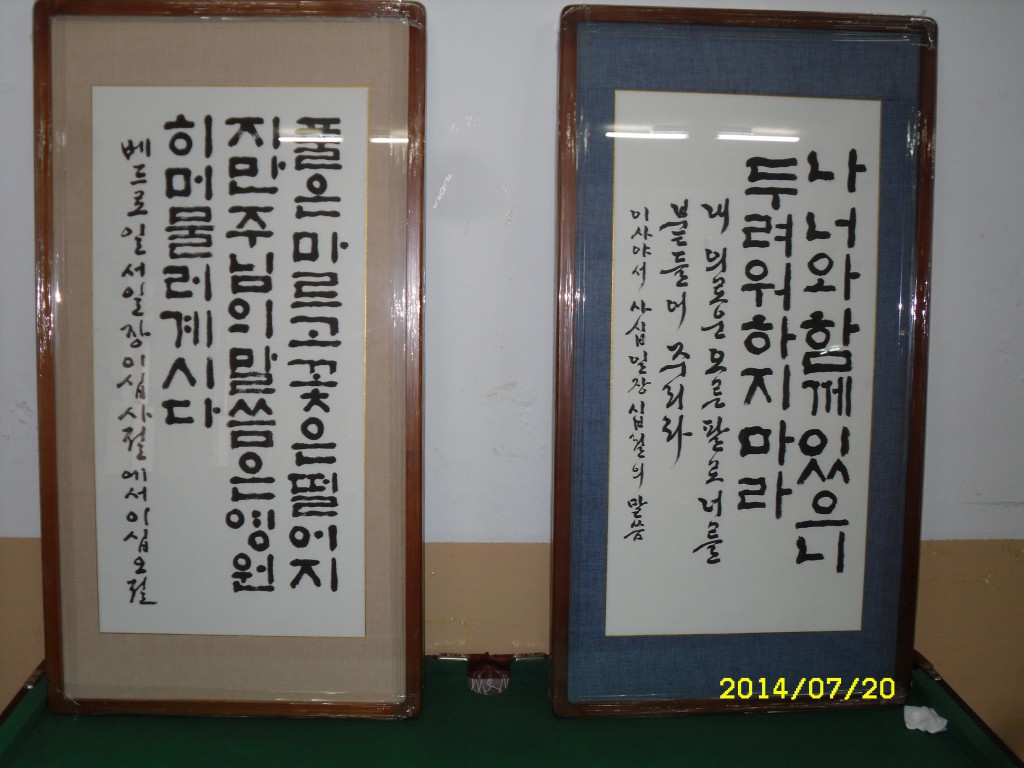 풀은마르고꽃은떨어지
지만주님의말씀은영원
히머물러계시다
베드로일서일장이십사절에서이십오절
나너와함께있으니
두려워하지마라
내 의로운 오른팔로 너를
붙들어 주리라
이사야서 사십일장 십절의 말씀
2014/07/20